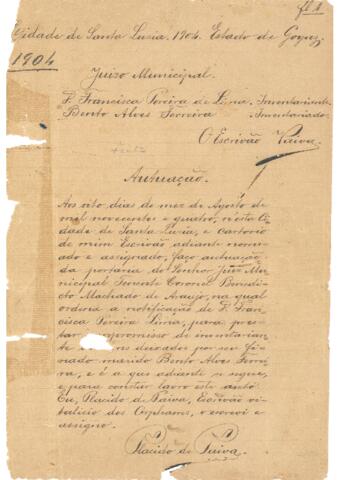 fl. 1
Cidade de Santa Luzia. 1904. Estado de Goyaz.
1904
Juizo Municipal.
D. Francisca Pereira de Lima. Inventariante
Bento Alves Ferreira. Inventariado.
O Escrivão Paiva
Autuação.
Aos oito dias do mez de Agosto de
mil novecentos e quatro, n'esta Ci-
dade de Santa Luzia, e cartorio
de mim Escrivão adiante nomea-
do e assignado, faço autuação
da portaria do Senhor Juiz Mu-
nicipal Tenente Coronel Benedic-
to Machado de Araujo, na qual
ordena a notificação de D. Fran-
cisca Pereira Lima, para pres-
tar compromisso de inventarian-
te bens deixados por seu fi-
nado marido Bento Alves Ferrei-
ra, e é a que adiante se segue,
e para constar lavro este auto.
Eu, Placido de Paiva, Escrivão vi-
talicio dos Orphaons, o escrevi e
assigno.
Placido de Paiva.